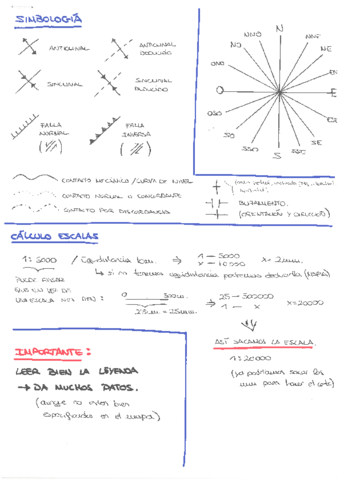 SIMBOLOGÍA
ANTICLINAL
ANTICLINAL
DEDUCIDO
SINCLINAL
SINCLINAL
DEDUCIDO
FALLA
NORMAL
FALLA
INVERSA
CONTACTO MECÁNICO / CURVA DE NIVEL
CONTACTO NORMAL O CONCORDANTE
CONTACTO POR DISCORDANCIA
N
NNO
NNE
NO
NE
ONO
O
E
OSO
SO
SE
SSO
SSE
S
BUZAMIENTO
(ORIENTACIÓN Y DIRECCIÓN)
CÁLCULO ESCALAS
1:5000 / Equidistancia 10m. ⇒ 1 — 5000
x — 10000
x = 2mm.
↳ si no tenemos equidistancia podríamos deducirla (MAPA)
PUEDE PASAR
QUE EN VEZ DE
UNA ESCALA NOS DEN:
0
500m.
2'5cm = 25mm.
⇒ 25 — 500000
1 — x
x = 20000
ASÍ SACAMOS LA ESCALA.
1:20000
(ya podríamos sacar los
mm para hacer el corte)
IMPORTANTE:
LEER BIEN LA LEYENDA
→ DA MUCHOS DATOS.
(aunque no estén bien
especificados en el mapa)